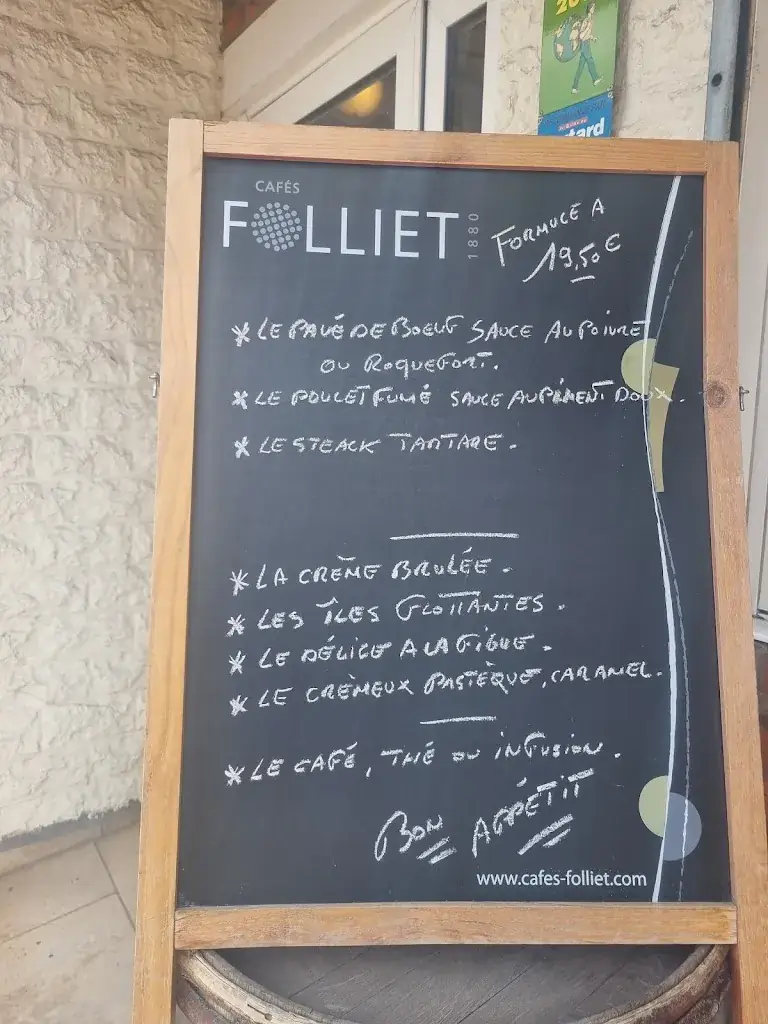 20
tard
CAFÉS
FOLLIET
1880
FORMULE A
19,50 €
* LE PAVÉ DE BOEUF SAUCE AU POIVRE
OU ROQUEFORT.
* LE POULET FUMÉ SAUCE AU PIMENT DOUX.
* LE STEACK TARTARE.
* LA CRÈME BRULÉE.
* LES ÎLES FLOTTANTES.
* LE DÉLICE A LA FIGUE.
* LE CRÈMEUX PASTÈQUE, CARAMEL.
* LE CAFÉ, THÉ OU INFUSION.
BON APPÉTIT
www.cafes-folliet.com